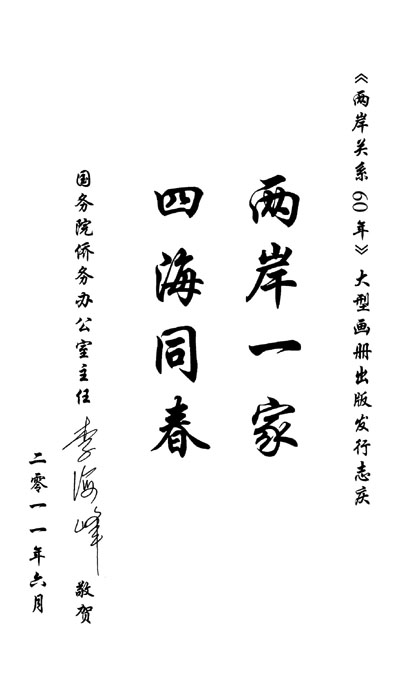 《两岸关系60年》大型画册出版发行志庆
两岸一家
四海同春
国务院侨务办公室主任 李海峰 敬贺
二零一一年六月